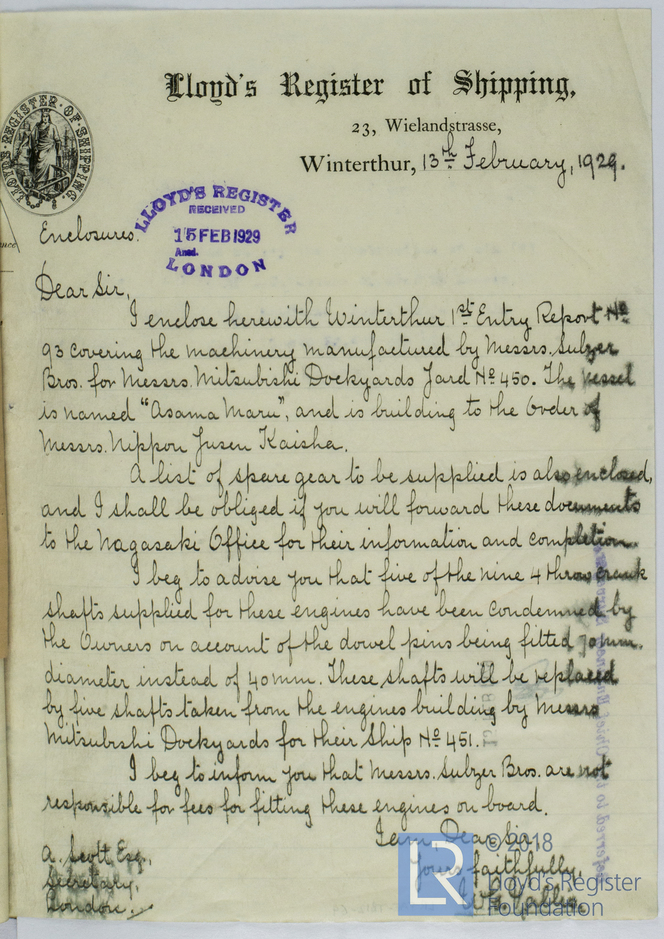 Lloyd's Register of Shipping,
23, Wielandstrasse,
Winterthur, 13th February, 1929.
LLOYD'S REGISTER OF SHIPPING.
LLOYD'S REGISTER
RECEIVED
15 FEB 1929
Ansd.
LONDON
Enclosures.
Dear Sir,
I enclose herewith Winterthur 1st Entry Report No
93 covering the machinery manufactured by Messrs. Sulzer
Bros. for Messrs. Mitsubishi Dockyards Yard No 450. The vessel
is named "Asama Maru", and is building to the Order of
Messrs. Nippon Yusen Kaisha.
A list of spare gear to be supplied is also enclosed,
and I shall be obliged if you will forward these documents
to the Nagasaki Office for their information and completion.
I beg to advise you that five of the nine 4 throw crank
shafts supplied for these engines have been condemned by
the Owners on account of the dowel pins being fitted 70 mm.
diameter instead of 40 mm. These shafts will be replaced
by five shafts taken from the engines building by Messrs
Mitsubishi Dockyards for their Ship No 451.
I beg to inform you that Messrs. Sulzer Bros. are not
responsible for fees for fitting these engines on board.
I am, Dear Sir,
Yours faithfully,
A. Scott, Esq.,
Secretary,
London.
LR
© 2018
Lloyd's Register
Foundation